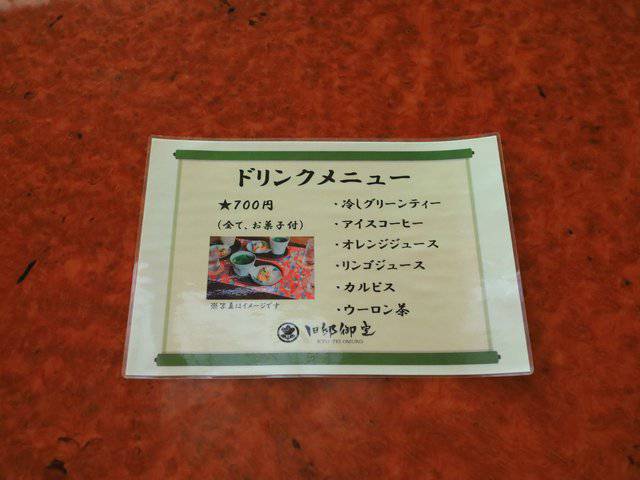 ドリンクメニュー
★700円
(全て、お菓子付)
※写真はイメージです
・冷しグリーンティー
・アイスコーヒー
・オレンジジュース
・リンゴジュース
・カルピス
・ウーロン茶
旧邸御室
KYU-TEI OMURO